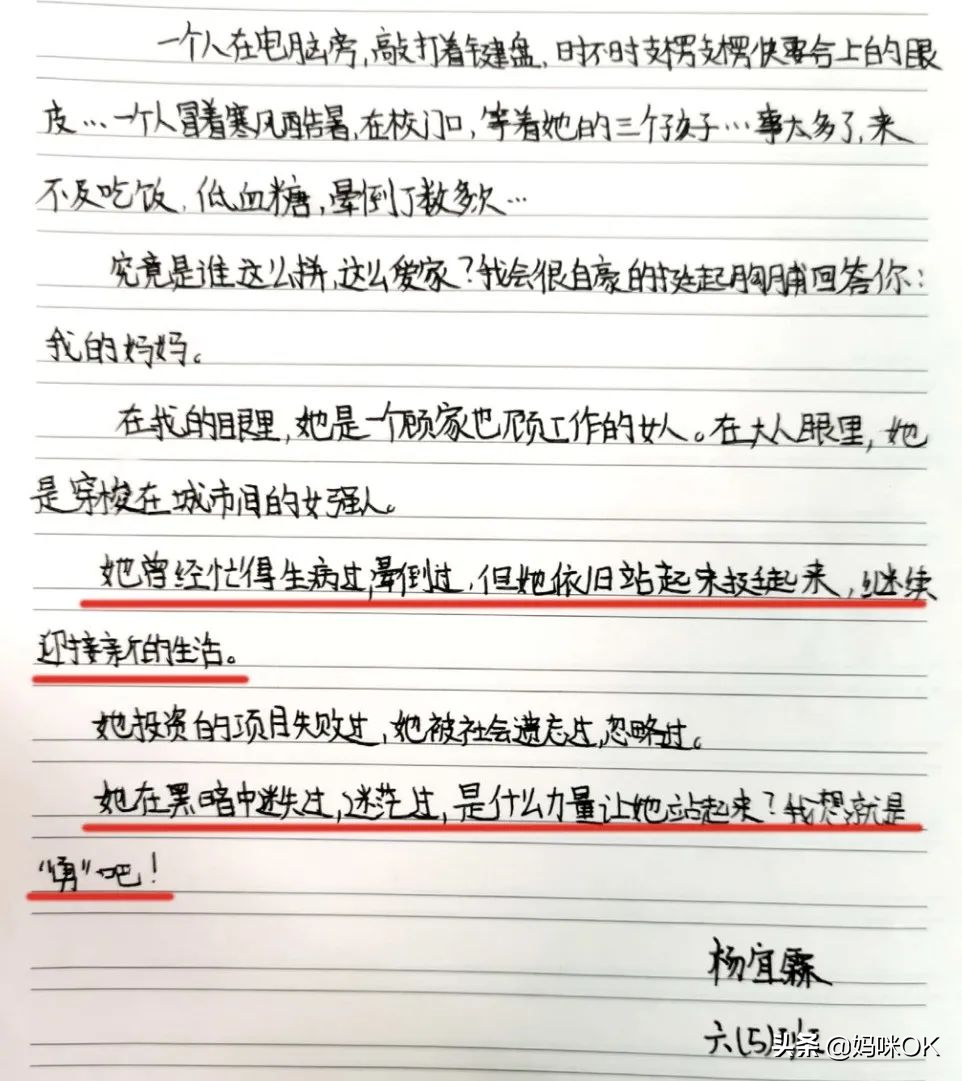 一个人在电脑旁,敲打着键盘,时不时支楞支楞快要合上的眼
皮…一个人冒着寒风酷暑,在校门口,等着她的三个孩子…事太多了,来
不及吃饭,低血糖,晕倒了数多次…
究竟是谁这么拼,这么爱家?我会很自豪的挺起胸脯回答你:
我的妈妈。
在我的眼里,她是一个顾家也顾工作的女人。在大人眼里,她
是穿梭在城市间的女强人。
她曾经忙得生病过,晕倒过,但她依旧站起来挺起来,继续
迎接新的生活。
她投资的项目失败过,她被社会遗忘过,忽略过。
她在黑暗中迷失过,迷茫过,是什么力量让她站起来?我想就是
"勇"吧!
杨宜霖
六(5)班
头条 @妈咪OK